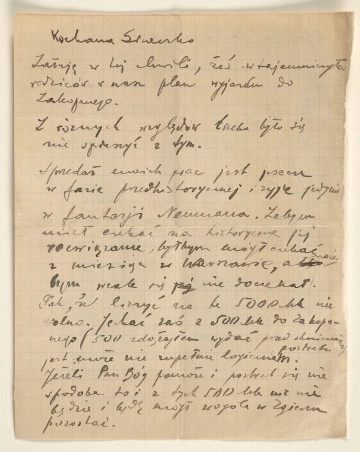 Kochana Siostrzko
Żałuję w tej chwili, żeś wtajemniczyła
rodziców w nasz plan wyjazdu do
Zakopanego.
Z różnych względów trzeba było się
nie spieszyć z tym.
Sprzedaż moich prac jest przecie
w fazie przedhistorycznej i żyje jedynie
w fantazji Neumana. Żebym
miał czekać na historyczne jej
rozwiązanie, byłbym mógł czekać
z miesiąc w Warszawie, a
bym wcale się nie doczekał.
Tak, że liczyć na te 5000 mk nie
wolno. Jechać zaś z 500 mk do Zakopa-
nego (500 założyłem wydać przed skończeniem
portretu
jest może nie zupełnie logicznem.
Jeżeli Pan Bóg pomoże i portret się nie
spodoba to i z tych 500 mk nic nie
będzie i będę mógł wogóle w Zgierzu
pozostać.